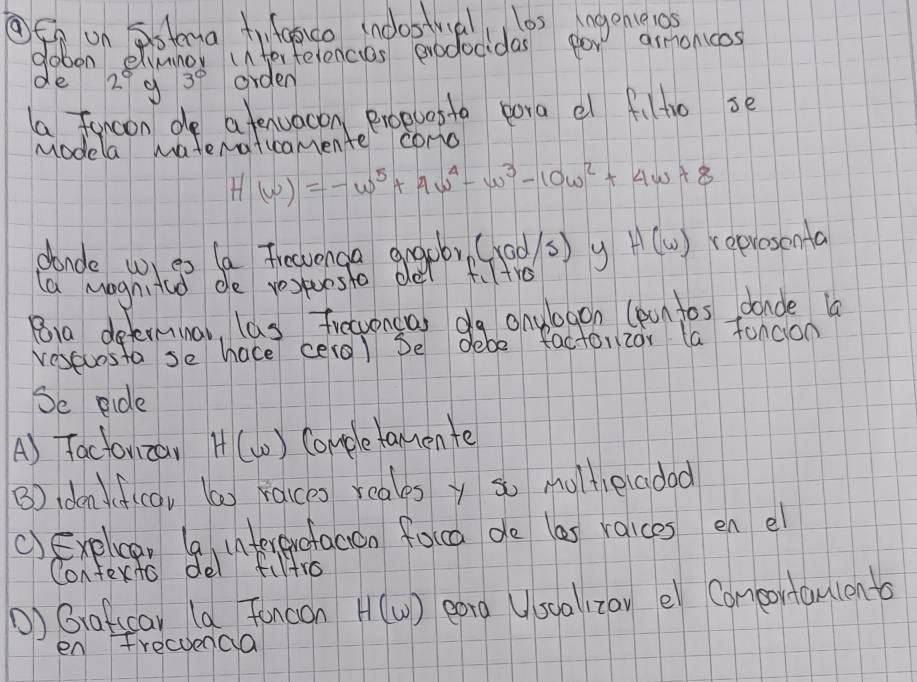 a) En un Sistema trifasico industrial, los ingenieros
deben eliminar interferencias producidas por armonicos
de 2° y 3° orden
la funcion de atenuacon propuesta para el filtro se
modela matematicamente como
H(w) = -w⁵ + 4w⁴ - w³ - 10w² + 4w + 8
donde w es la frecuencia angular (rad/s) y H(w) representa
la magnitud de respuesta del filtro
Para determinar las frecuencias de anulacion (puntos donde la
respuesta se hace cero) se debe factorizar la funcion
Se pide
A) Factorizar H(w) Completamente
B) identificar las raices reales y su multiplicidad
C) Explicar la interpretacion fisica de las raices en el
Contexto del filtro
D) Graficar la funcion H(w) para Visualizar el Comportamiento
en frecuencia